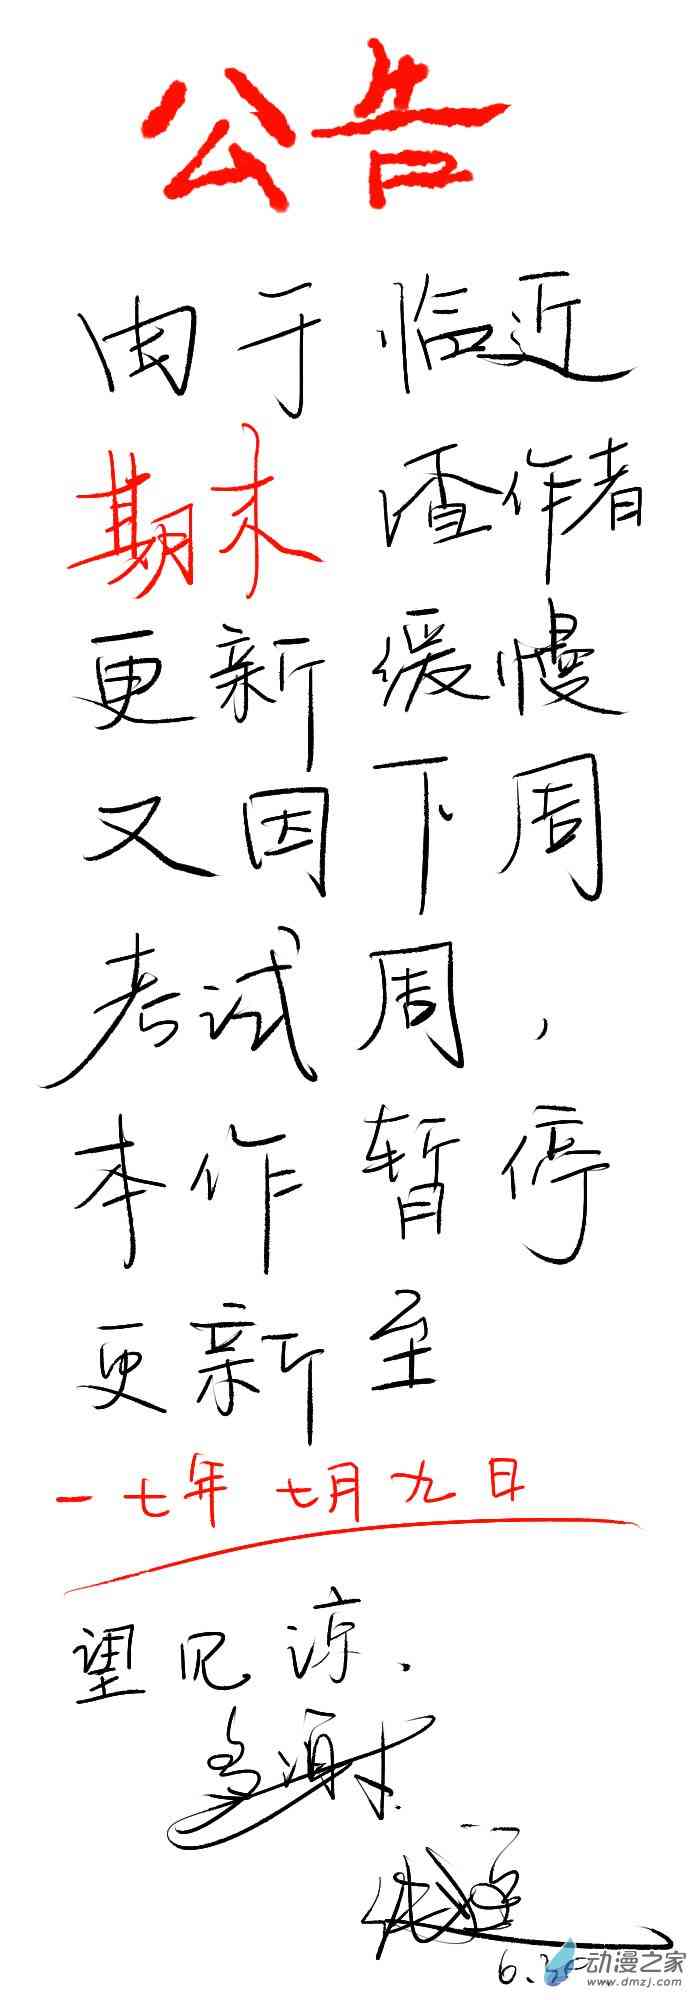 公告
由于临近
期末 渣作者
更新缓慢
又因下周
考试周，
本作暂停
更新至
一七年七月九日
望见凉.
多谢.
6.30
动漫之家
www.dmzj.com